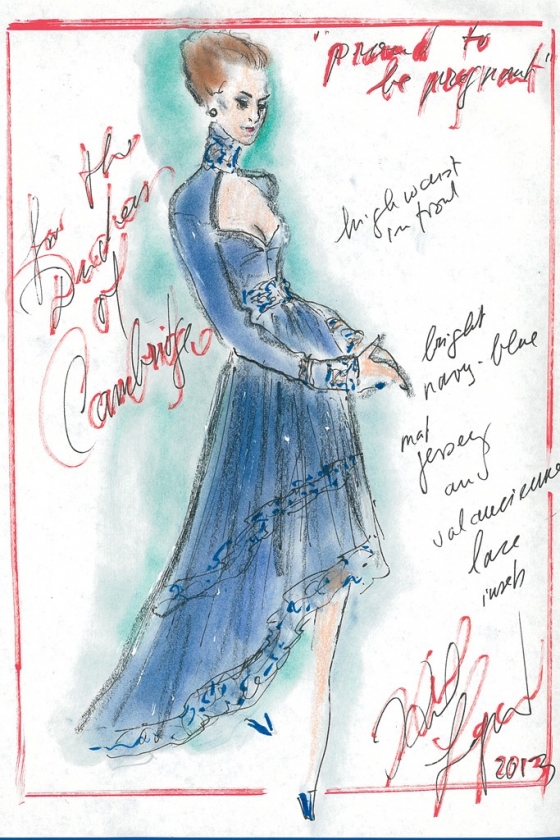 "proud to
be pregnant"
for the
Duchess
of
Cambridge
high waist
in front
bright
navy-blue
mat
jersey
and
valancienne
lace
insets
2013